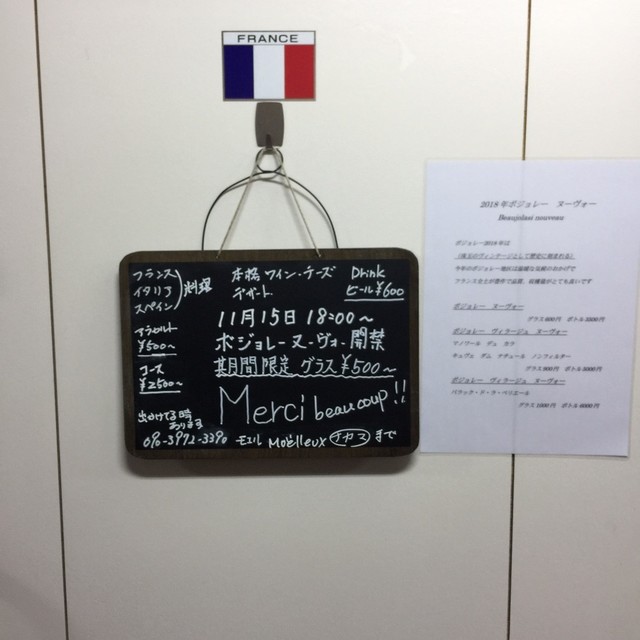 FRANCE
フランス
イタリア
スペイン
料理
アラカルト
¥500〜
コース
¥2500〜
出かけてる時
あります
本格ワイン・チーズ
デザート
Drink
ビール¥600
11月15日 18:00〜
ボジョレーヌーヴォー開禁
期間限定 グラス¥500〜
Merci beaucoup!!
モエル Moëlleux ナカマ まで
2018年ボジョレー ヌーヴォー
Beaujolasi nouveau
ボジョレー2018年は
今年のボジョレー地区は温暖な気候のおかげで
フランス全土が豊作で品質、収穫量がとても良いです
ボジョレー ヌーヴォー
グラス600円 ボトル3500円
ボジョレー ヴィラージュ ヌーヴォー
マノワール デュ カラ
キュヴェ デム ナチュール ノンフィルター
グラス900円 ボトル5000円
ボジョレー ヴィラージュ ヌーヴォー
グラス1000円 ボトル6000円